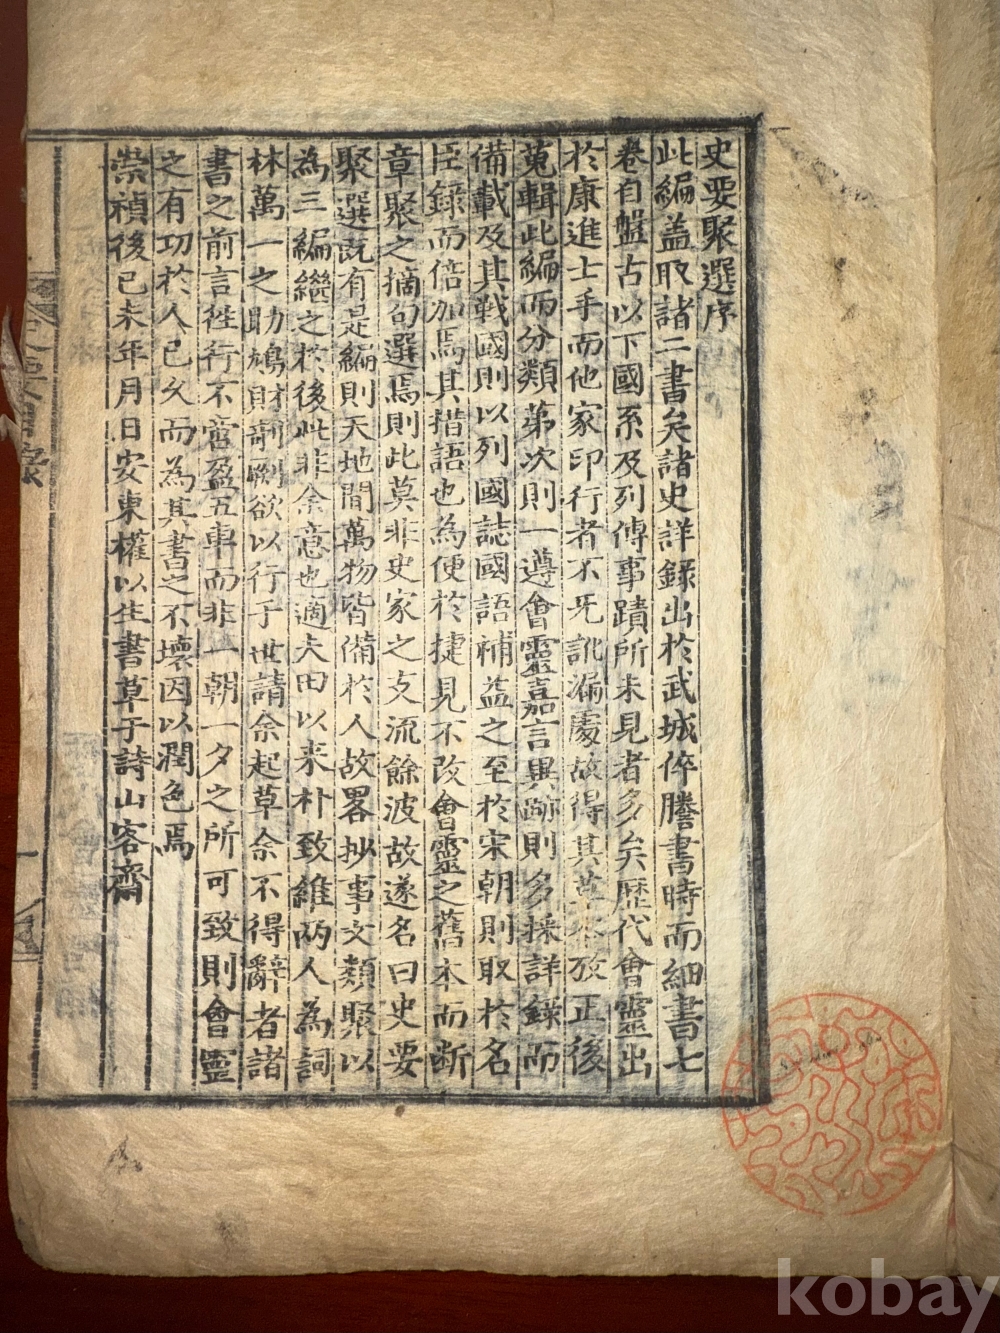 史要聚選序
此編盖取諸二書矣諸史詳錄出於武城倅謄書時而細書七
卷自盤古以下國系及列傳事蹟所未見者多矣歷代會靈出
於康進士手而他家印行者不旡訛漏處故得其草本攷正後
蒐輯此編而分類苐次則一遵會靈嘉言異跡則多採詳錄而
備載及其戰國則以列國誌國語補益之至於宋朝則取於名
臣錄而倍加焉其措語也為便於捷見不改會靈之舊本而断
章聚之摘句選焉則此莫非史家之支流餘波故遂名曰史要
聚選旣有是編則天地間萬物皆備於人故畧抄事文類聚以
為三編繼之於後此非余意也適夫田以来朴致維两人為詞
林萬一之助鳩財剞劂欲以行于世請余起草余不得辭者諸
書之前言徃行不啻盈五車而非一朝一夕之所可致則會靈
之有功於人已久而為其書之不壞因以潤色焉
崇禎後己未年月日安東權以生書草于詩山客齋
一
kobay